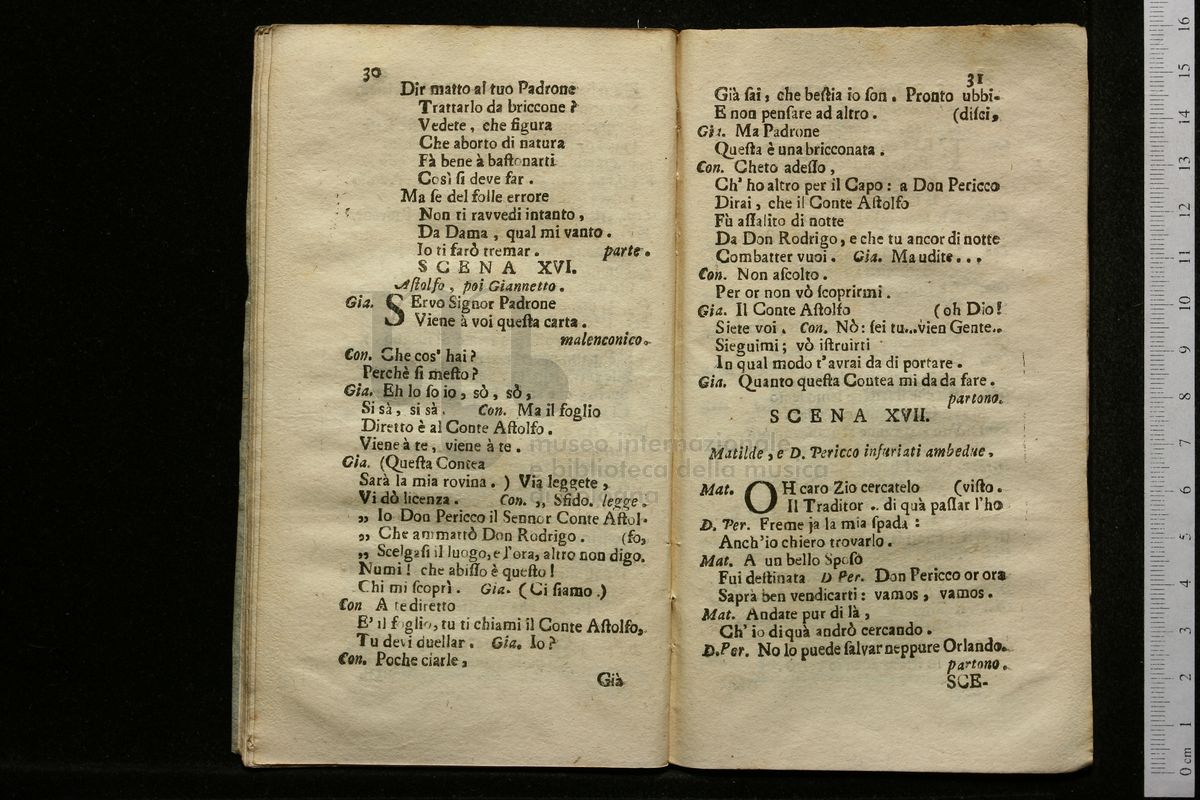 30
Dir matto al tuo Padrone
Trattarlo da briccone?
Vedete, che figura
Che aborto di natura
Fà bene à baſtonarti
Così ſi deve far.
Ma ſe del folle errore
Non ti ravvedi intanto,
Da Dama, qual mi vanto.
Io ti farò tremar. parte.
SCENA XVI.
Aſtolfo, poi Giannetto.
Gia. SErvo Signor Padrone
Viene à voi queſta carta.
malenconico.
Con. Che cos' hai?
Perchè ſi meſto?
Gia. Eh lo ſo io, sò, sò,
Si sà, si sà. Con. Ma il foglio
Diretto è al Conte Aſtolfo.
Viene à te, viene à te.
Gia. (Queſta Contea
Sarà la mia rovina.) Via leggete,
Vi dò licenza. Con. ,, Sfido. legge.
,, Io Don Pericco il Sennor Conte Aſtol-
,, Che ammattò Don Rodrigo. (fo,
,, Scelgaſi il luogo, e l'ora, altro non digo.
Numi! che abiſſo è queſto!
Chi mi ſcoprì. Gia. (Ci ſiamo.)
Con A te diretto
E' il foglio, tu ti chiami il Conte Aſtolfo,
Tu devi duellar. Gia. Io?
Con. Poche ciarle,
Già
31
Già ſai, che beſtia io ſon. Pronto ubbi-
E non penſare ad altro. (diſci,
Gia. Ma Padrone
Queſta è una bricconata.
Con. Cheto adeſſo,
Ch' ho altro per il Capo: a Don Pericco
Dirai, che il Conte Aſtolfo
Fù aſſalito di notte
Da Don Rodrigo, e che tu ancor di notte
Combatter vuoi. Gia. Ma udite...
Con. Non aſcolto.
Per or non vò ſcoprirmi.
Gia. Il Conte Aſtolfo (oh Dio!
Siete voi. Con. Nò: ſei tu...vien Gente..
Sieguimi; vò iſtruirti
In qual modo t'avrai da di portare.
Gia. Quanto queſta Contea mi da da fare.
partono.
SCENA XVII.
Matilde, e D. Pericco infuriati ambedue.
Mat. OH caro Zio cercatelo (viſto.
Il Traditor .. di quà paſſar l'ho
D. Per. Freme ja la mia ſpada:
Anch'io chiero trovarlo.
Mat. A un bello Spoſo
Fui deſtinata D Per. Don Pericco or ora
Saprà ben vendicarti: vamos, vamos.
Mat. Andate pur di là,
Ch' io di quà andrò cercando.
D.Per. No lo puede ſalvar neppure Orlando.
partono.
SCE-
museo internazionale
e biblioteca della musica
di bologna
0 cm 1 2 3 4 5 6 7 8 9 10 11 12 13 14 15 16